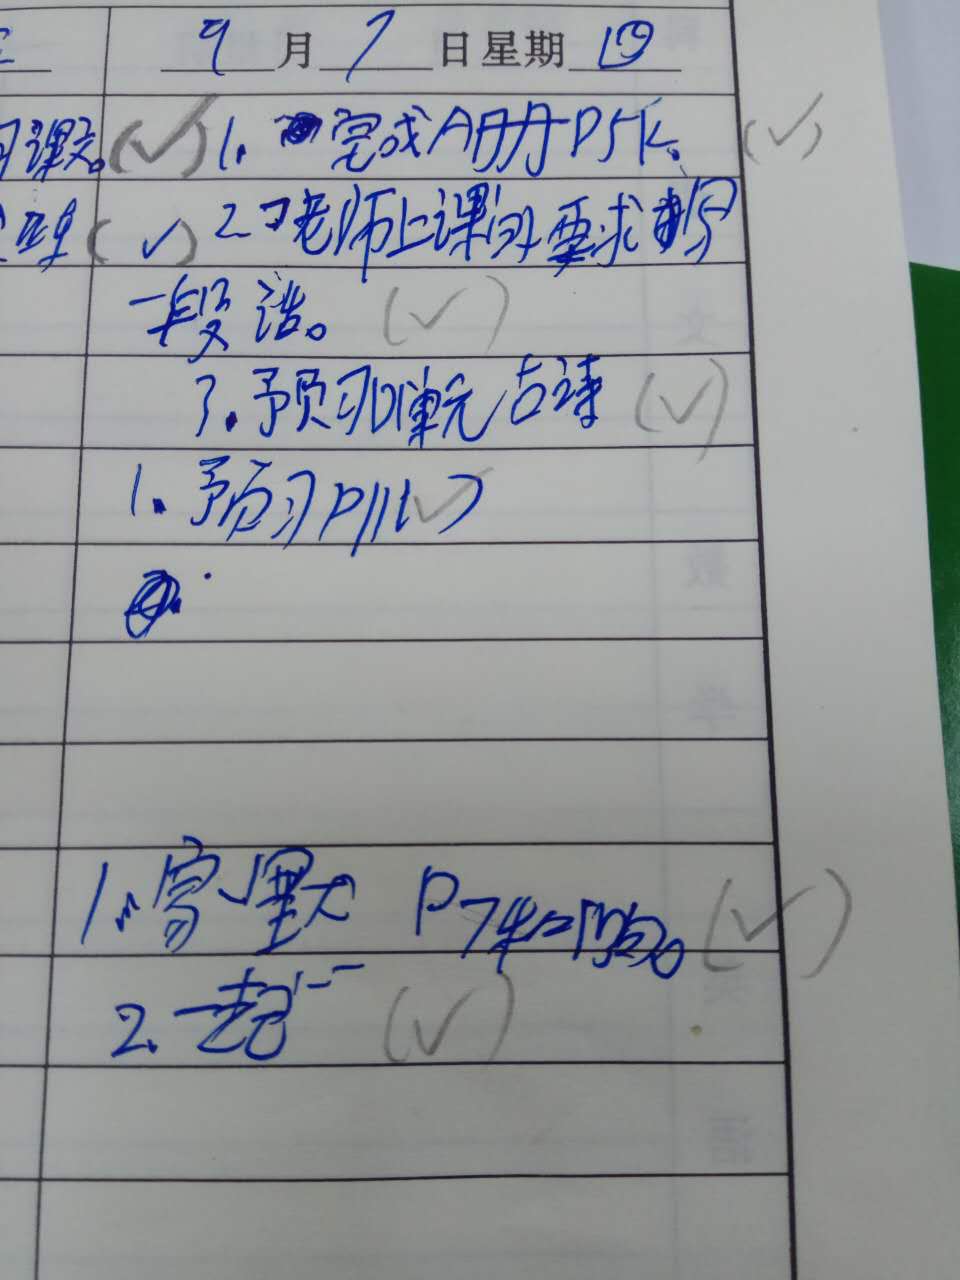 9月7日星期四
习课文。(✓) 1. 完成A册P5K. (✓)
理 (✓) 2. 老师上课的要求写
一段话。(✓)
3. 预习单元古诗 (✓)
1. 预习P11(✓)
1. 家默 P7 (✓)
2. 一起 (✓)